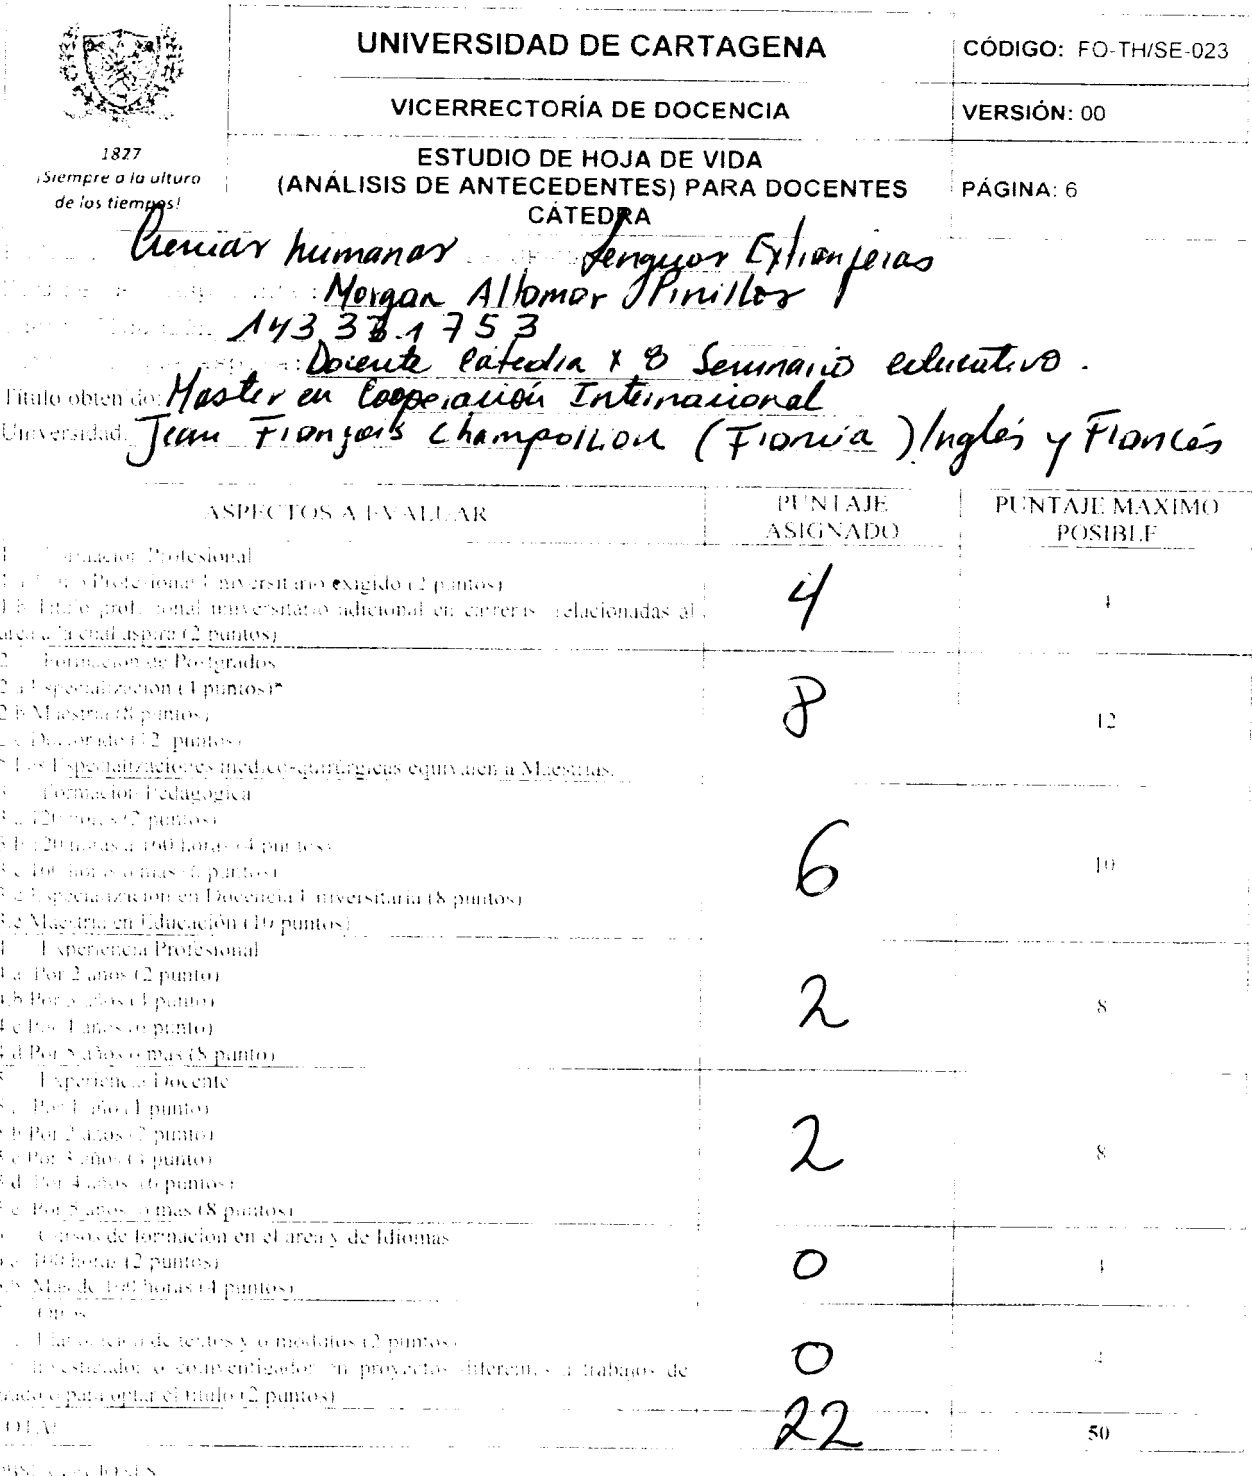 UNIVERSIDAD DE CARTAGENA
CÓDIGO: FO-TH/SE-023
VICERRECTORÍA DE DOCENCIA
VERSIÓN: 00
1827
¡Siempre a la altura
de los tiempos!
ESTUDIO DE HOJA DE VIDA
(ANÁLISIS DE ANTECEDENTES) PARA DOCENTES
CÁTEDRA
PÁGINA: 6
Ciencias humanas Lenguas Extranjeras
Morgan Altamar Pinillos
Docente Catedra x 8 Seminario educativo.
Titulo obtenido: Master en Cooperación Internacional
Universidad: Jean François Champollion (Francia) Inglés y Francés
ASPECTOS A EVALUAR
PUNTAJE ASIGNADO
PUNTAJE MAXIMO POSIBLE
Formacion Profesional
Profesional Universitario exigido (2 puntos)
1.b Titulo profesional universitario adicional en carreras relacionadas al
area a la cual aspira (2 puntos)
4
4
2 Formacion de Postgrados
2.a Especializacion (4 puntos)*
2.b Maestria (8 puntos)
2.c Doctorado (12 puntos)
* Las Especializaciones medico-quirúrgicas equivalen a Maestrias.
8
12
3 Formacion Pedagogica
3.a 120 horas (2 puntos)
3.b 120 horas a 160 horas (4 puntos)
3.c 160 horas o mas (6 puntos)
Especializacion en Docencia Universitaria (8 puntos)
3.e Maestria en Educación (10 puntos)
6
10
4 Experiencia Profesional
4.a Por 2 años (2 punto)
4.b Por 3 años (4 punto)
4.c Por 4 años (6 punto)
4.d Por 5 años o mas (8 punto)
2
8
5 Experiencia Docente
Por 1 año (1 punto)
5.b Por 2 años (2 punto)
5.c Por 3 años (4 punto)
5.d Por 4 años (6 puntos)
5.e Por 5 años o mas (8 puntos)
2
8
Cursos de formacion en el area y de Idiomas
100 horas (2 puntos)
Mas de 100 horas (4 puntos)
0
4
Otros
Elaboracion de textos y o modulos (2 puntos)
Investigador o coinvestigador en proyectos diferentes a trabajos de
grado o para optar el titulo (2 puntos)
0
4
TOTAL
22
50
OBSERVACIONES